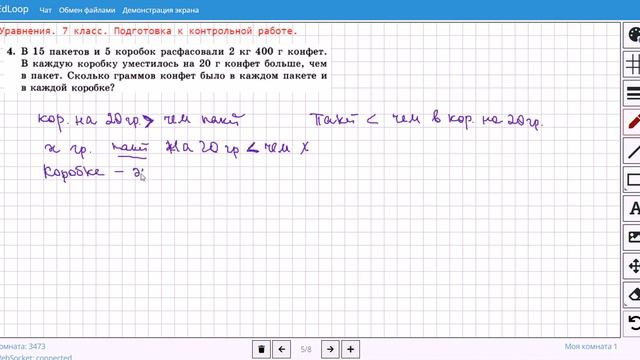 EdLoop Чат Обмен файлами Демонстрация экрана
Уравнения. 7 класс. Подготовка к контрольной работе.
4. В 15 пакетов и 5 коробок расфасовали 2 кг 400 г конфет.
В каждую коробку уместилось на 20 г конфет больше, чем
в пакет. Сколько граммов конфет было в каждом пакете и
в каждой коробке?
кор. на 20 гр. > чем пакет Пакет < чем в кор. на 20 гр.
x гр. пакет на 20 гр < чем x
Коробке –
омната: 3473 5/8 Моя комната 1
WebSocket: connected